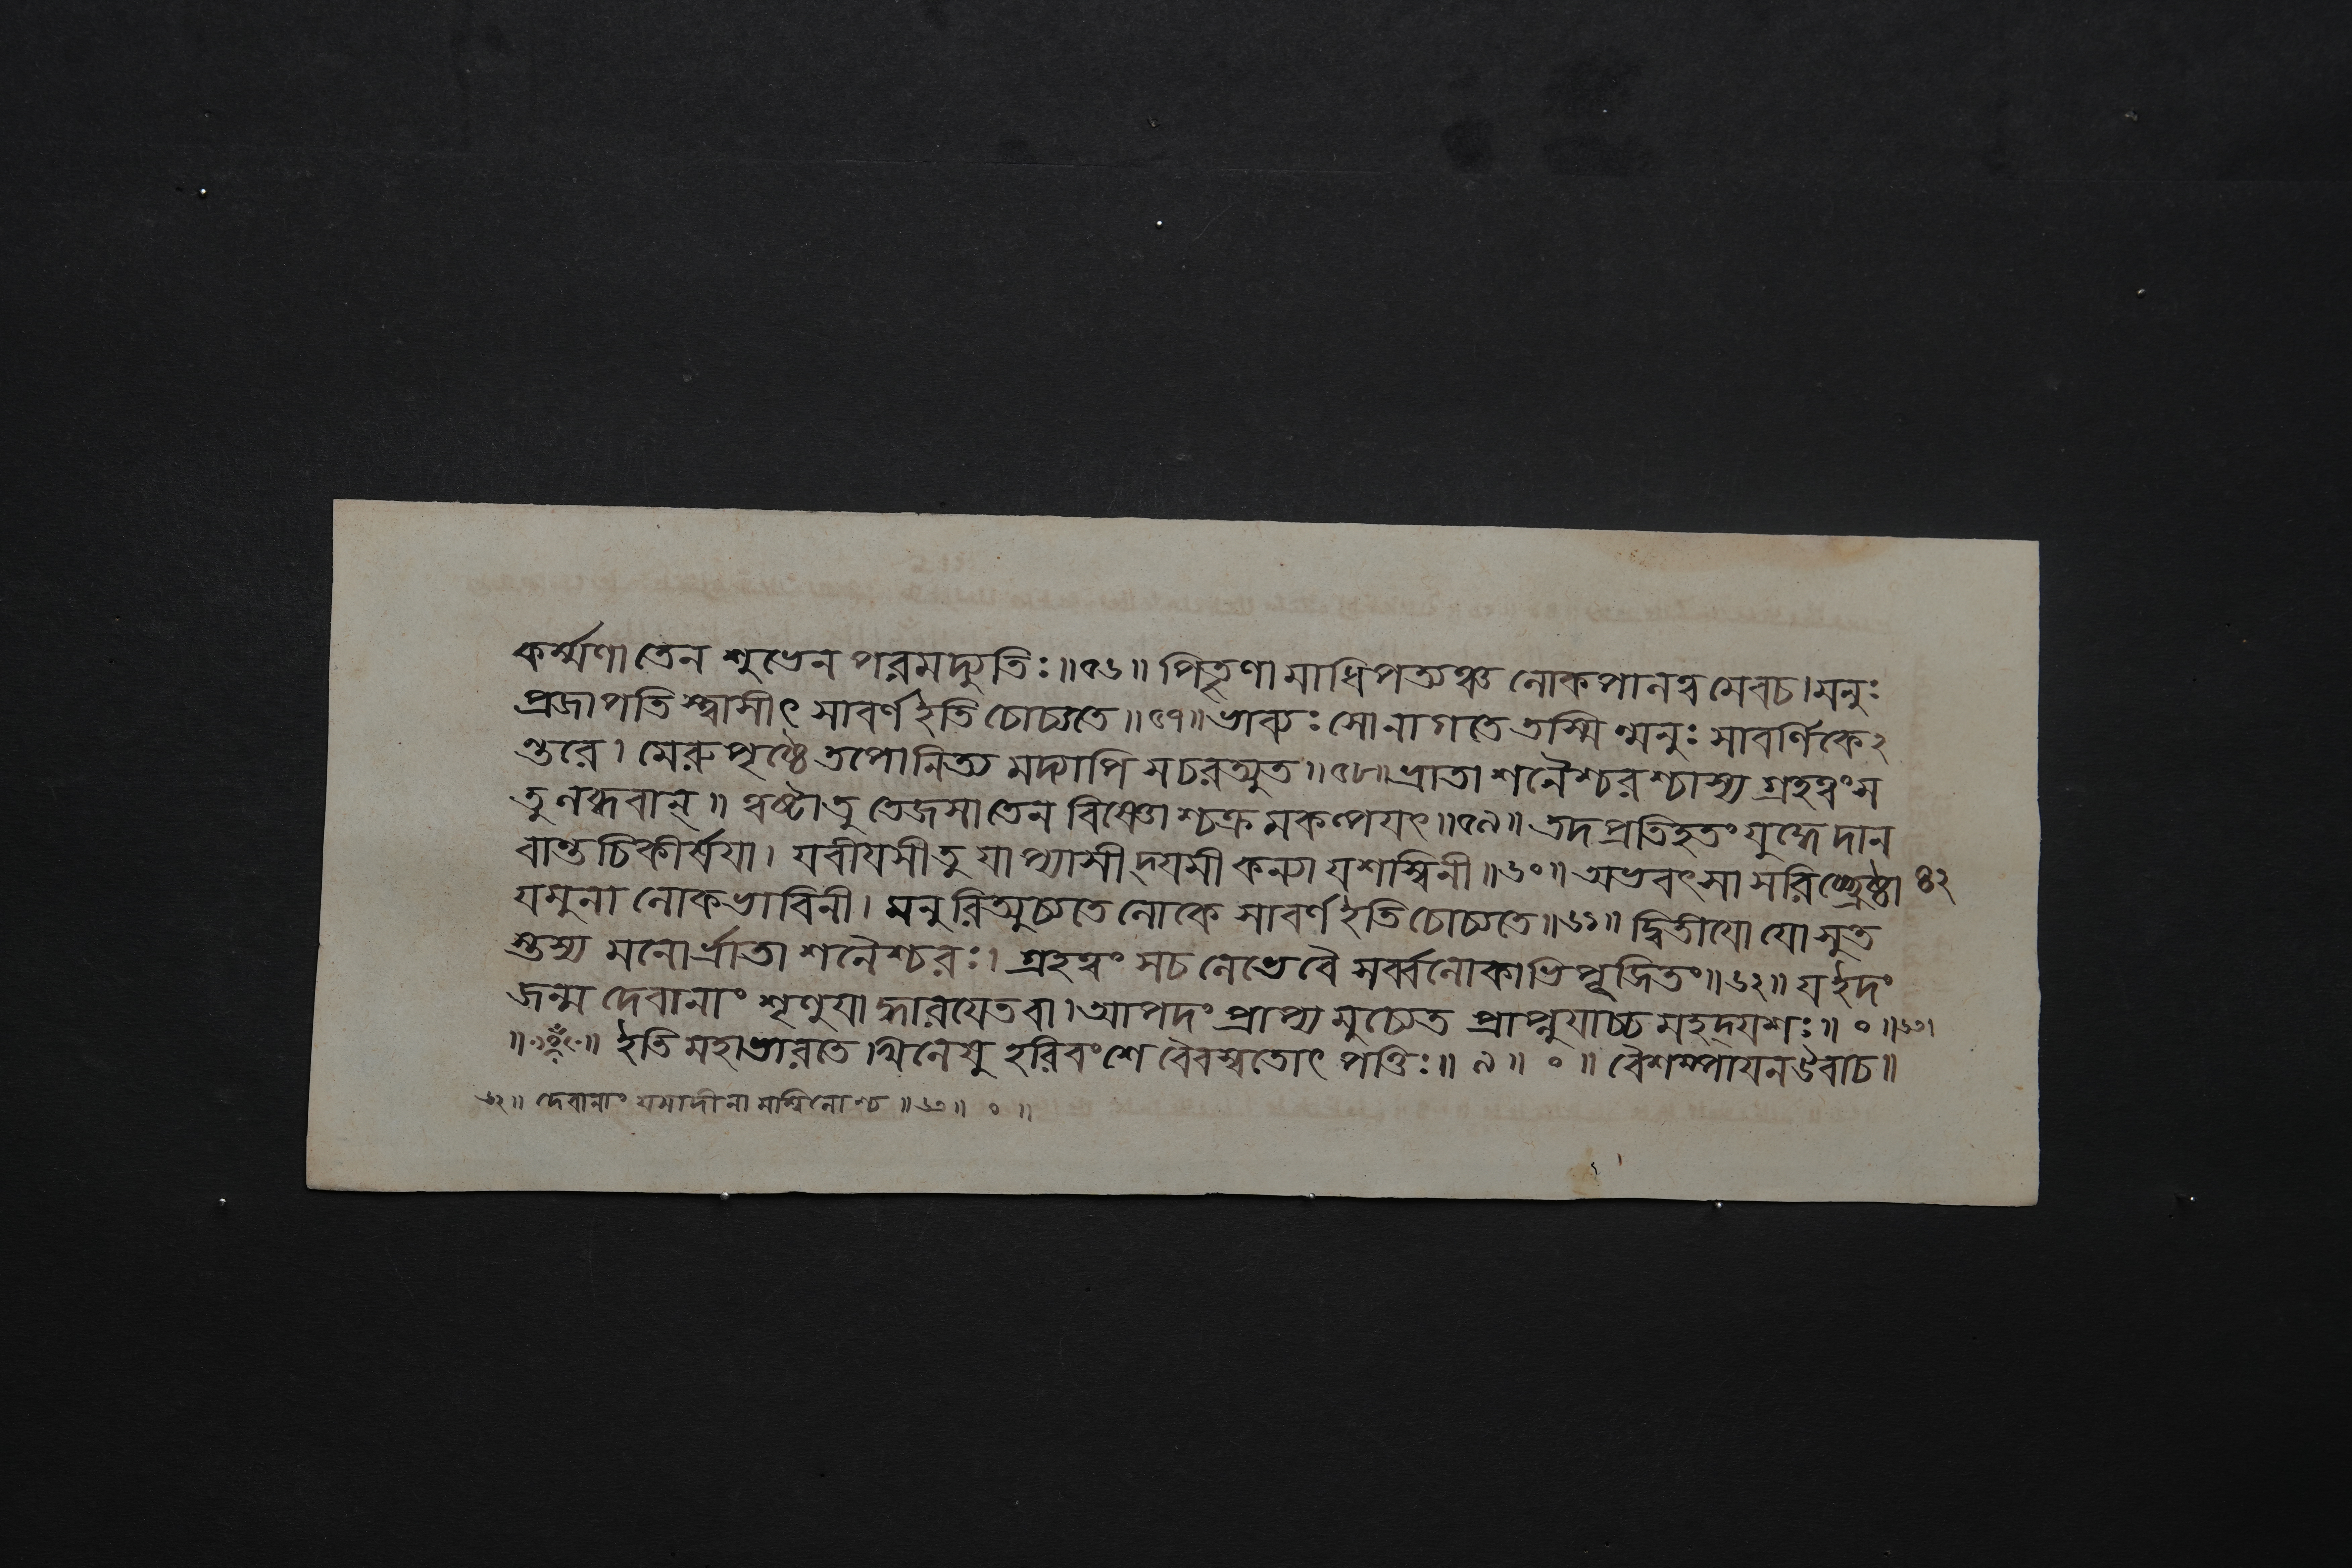 কর্ম্মণা তেন শুভেন পরমদ্যুতিঃ॥৫৬॥ পিতৄণামাধিপত্যঞ্চ লোকপালত্বমেবচ।মনুঃ
প্রজাপতিস্ত্বাসীৎ সাবর্ণ ইতি চোচ্যতে॥৫৭॥ ভাব্যঃ সোনাগতে তস্মিন্মনুঃ সাবর্ণিকে২
ন্তরে। মেরুপৃষ্ঠে তপোনিত্য মদ্যাপি সচরত্যুত॥৫৮॥ ভ্রাতা শনৈশ্চরশ্চাস্য গ্রহত্বংস
তু লব্ধবান্॥ ত্বষ্টাতু তেজসাতেন বিষ্ণোশ্চক্র মকল্পযৎ॥৫৯॥ তদপ্রতিহতং যুদ্ধে দান
বান্তচিকীর্ষযা। যবীযসীতু যাপ্যাসীদ্যমী কন্যা যশস্বিনী॥৬০॥ অভবৎসা সরিচ্ছ্রেষ্ঠা ৪২
যমুনা লোকভাবিনী। মনুরিত্যুচ্যতে লোকে সাবর্ণ ইতি চোচ্যতে॥৬১॥ দ্বিতীযো যো সুত
স্তস্য মনোর্ভ্রাতা শনৈশ্চরঃ। গ্রহত্বং সচ লেভেবৈ সর্ব্বলোকাভিপূজিতং॥৬২॥ য ইদং
জন্ম দেবানাং শৃণুযাদ্ধারযেতবা।আপদং প্রাপ্য মুচ্যেত প্রাপ্নুযাচ্চ মহদ্যশঃ॥ ০ ॥৬৩।
ইতি মহাভারতে খিলেষু হরিবংশে বৈবস্বতোৎপত্তিঃ॥ ৯॥ ০ ॥ বৈশম্পাযনউবাচ॥
৬২॥ দেবানাং যমাদীনা মশ্বিনোশ্চ ॥৬৩॥ ০ ॥